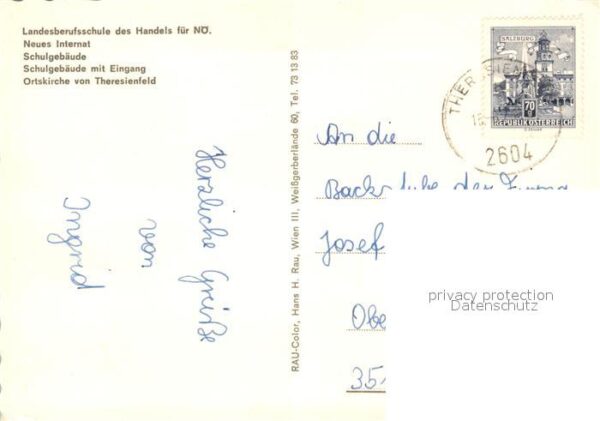 Landesberufsschule des Handels für NÖ.
Neues Internat
Schulgebäude
Schulgebäude mit Eingang
Ortskirche von Theresienfeld
SALZBURG
70 g
REPUBLIK ÖSTERREICH
2604
RAU-Color, Hans H. Rau, Wien III, Weißgerberlände 60, Tel. 73 13 83
Herzliche Grüße
von
Ingrid
An die
Backstube der Firma
Josef
Obe
35
privacy protection
Datenschutz